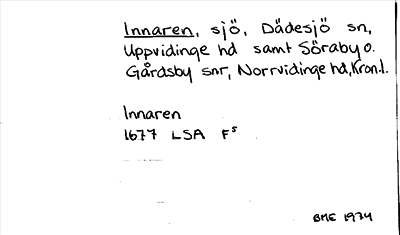 Innaren, sjö, Dädesjö sn,
Uppvidinge hd samt Söraby o.
Gårdsby snr, Norrvidinge hd, Kron.l.
Innaren
1677 LSA Fs
BME 1974